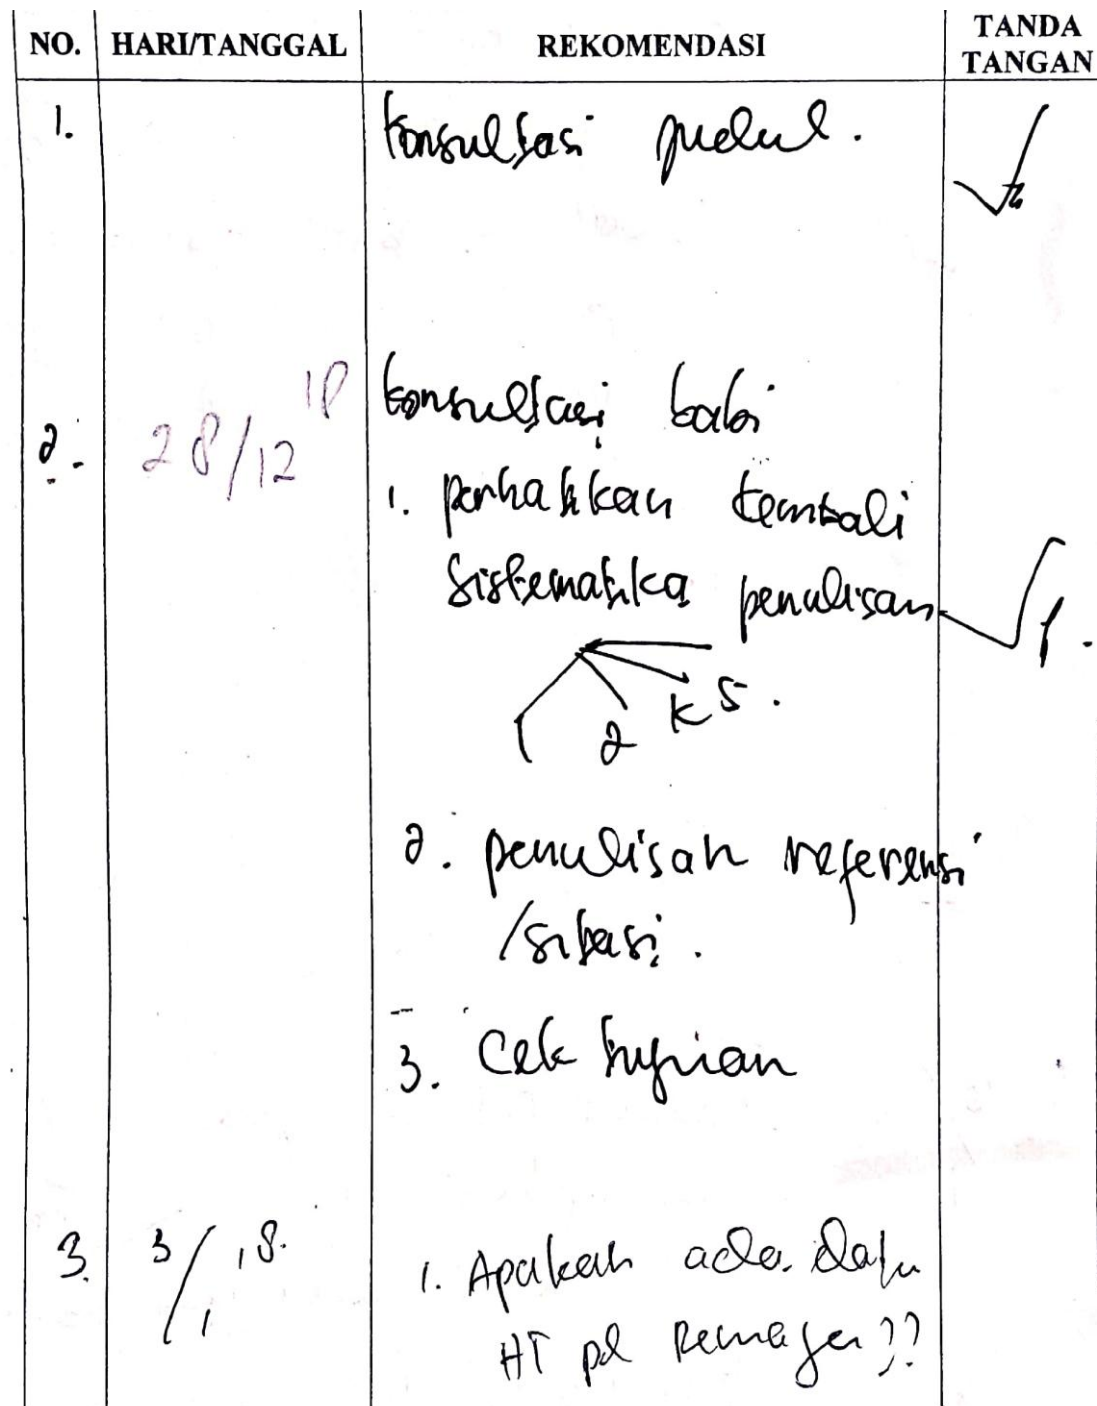 NO. HARI/TANGGAL REKOMENDASI TANDA TANGAN
1. Konsultasi judul.
2. 28/12 18 Konsultasi bab i
1. perhatikan kembali
sistematika penulisan
1 2 K S.
2. penulisan referensi
/sitasi.
3. Cek
3. 3/1 18. 1. Apakah ada data
HT pd Remaja??